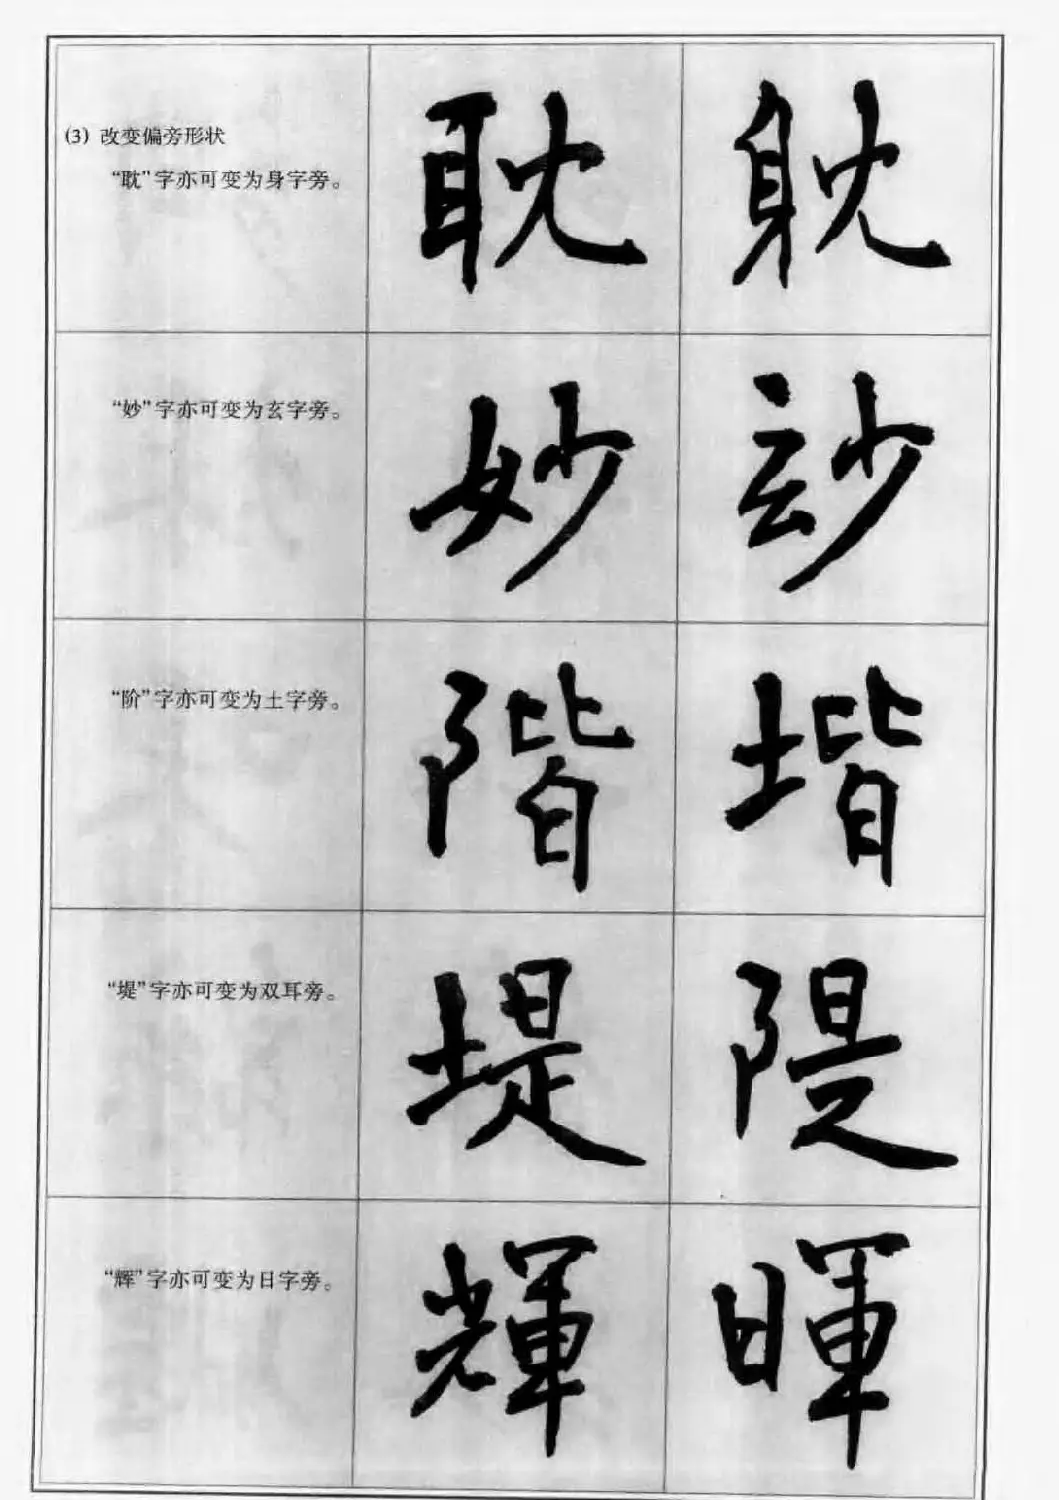 (3) 改变偏旁形状
“耽”字亦可变为身字旁。
耽 躭
“妙”字亦可变为玄字旁。
妙 玅
“阶”字亦可变为土字旁。
階 堦
“堤”字亦可变为双耳旁。
堤 隄
“辉”字亦可变为日字旁。
輝 暉